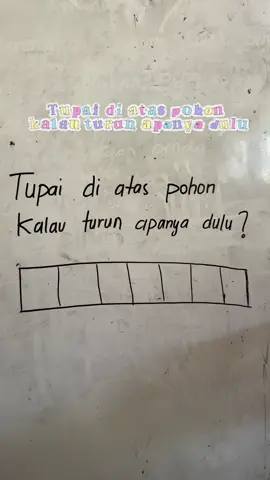 Tupai di atas pohon
kalau turun apanya dulu
Tupai di atas pohon
Kalau turun apanya dulu?